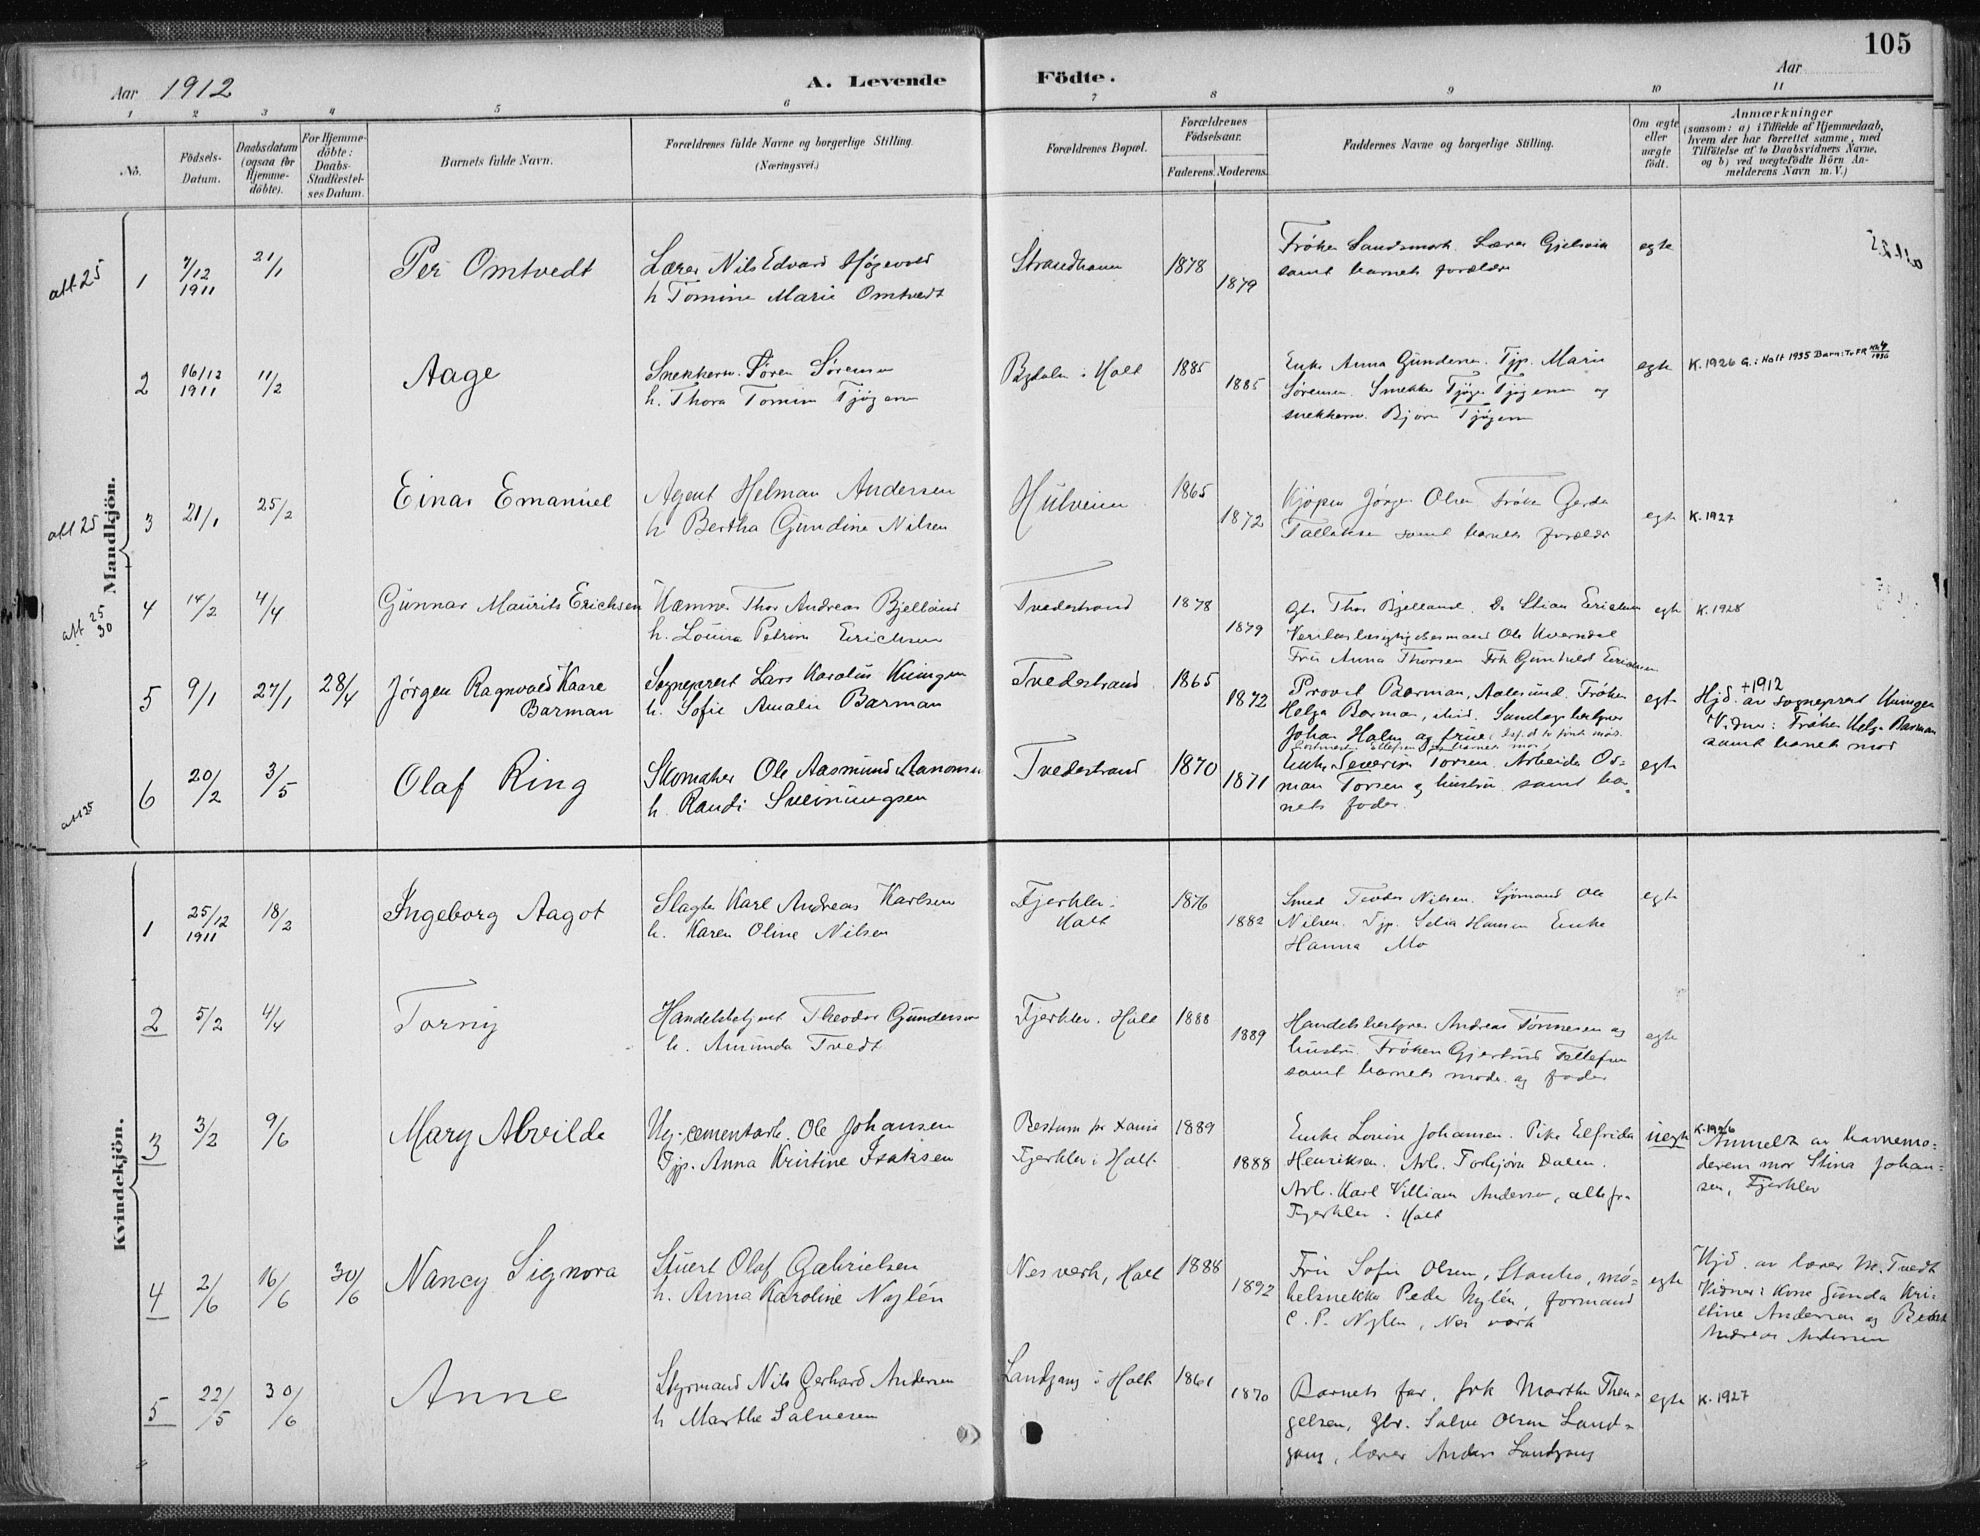 105
Aar 1912
A. Levende Födte.
Aar
1 2 3 4 5 6 7 8 9 10 11
No.
Födsels-Datum.
Daabsdatum (ogsaa for Hjemme-döbte).
For Hjemme-döbte: Daabs-Stadfæstel-ses Datum.
Barnets fulde Navn.
Forældrenes fulde Navne og borgerlige Stilling. (Næringsvei.)
Forældrenes Bopæl.
Forældrenes Födselsaar.
Faderens. Moderens.
Faddernes Navne og borgerlige Stilling.
Om ægte eller uægte födt.
Anmærkninger
(saasom: a) i Tilfælde af Hjemmedaab, hvem der har forrettet samme, med Tilföielse af to Daabsvidners Navne, og b) ved uægtefödte Börn Anmelderens Navn m. V.)
Mandkjön.
att 25
1
7/12 1911
21/1
Per Omtvedt
Lærer Nils Edvard Høgevold
h. Tomine Marie Omtvedt
Strandhaven
1878
1879
Frøken Sandsmark. Lærer Gjelsvik
samt barnets forældre
egte
2
16/12 1911
11/2
Aage
Snekkerm. Søren Sørensen
h. Thora Tomine Tjøgersen
Bødalen i Holt
1885
1885
Enke Anna Gundersen. Tjp. Marie
Sørensen. Snekker Tjøge Tjøgersen og
snekkerm. Bjarne Tjøgersen
egte
K. 1926 G. i Holt 1935
att 25
3
21/1
25/2
Einar Emanuel
Agent Helman Andersen
h Bertha Gundine Nilsen
Hulveien
1865
1872
Kjøpm Jørgen Olsen Frøken Gerda
Tallaksen samt barnets forældre
egte
K. 1927
att 25
30
4
14/2
4/4
Gunnar Maurits Erichsen
Kæmner Thor Andreas Bjelland
h. Louise Petrine Erichsen
Tvedestrand
1878
1879
Gbr Thor Bjelland. Do Stian Erichsen
Ole Kverndal
Frü Anna Thorsen Frk Gunhild Erichsen
egte
K. 1928
5
9/1
27/1
28/4
Jørgen Ragnvald Kaare
Barman
Sogneprest Lars Karolus Kviingen
h. Sofie Amalie Barman
Tvedestrand
1865
1872
Provst Barman, Aalesund. Frøken
Helga Barman, ibid.
Johan Holm og frue
egte
+1912
Hjd. av sogneprest Kviingen
Vidner: Frøken Helga Barman
samt barnets mor
att 25
6
20/2
3/5
Olaf Ring
Skomaker Ole Aasmund Aanonsen
h. Randi Sveinungsen
Tvedestrand
1870
1871
Enke Severine Torsen. Arbeider Os-
man Torsen og hustru samt bar-
nets fader.
egte
Kvindekjön.
1
25/12 1911
18/2
Ingeborg Aagot
Slagter Karl Andreas Karlsen
h. Karen Oline Nilsen
Fjerkler i
Holt
1876
1882
Smed Teodor Nilsen. Sjømand Ole
Nilsen. Tjp. Selia Hansen Enke
Hanna Mo
egte
2
5/2
4/4
Torny
Handelsbetjent Theodor Gundersen
h. Amunda Tvedt
Fjerkler i Holt
1888
1889
Handelsbestyrer Andreas Tønnesen og
hustru. Frøken Gjertrud Tellefsen
samt barnets moder og fader
egte
3
3/2
9/6
Mary Alvilde
Ug. cementarb. Ole Johansen
Tjp. Anna Kristine Isaksen
Bestum pr Xania
Fjerkler i Holt
1889
1888
Enke Louise Johansen. Pike Elfrida
Henriksen. Arb. Torbjørn Dalen.
Arb. Karl Villiam Andersen, alle fra
Fjerkler i Holt
uegte
K. 1926
Anmeldt av barnemo-
derens mor Stina Johan-
sen, Fjerkler
4
2/6
16/6
30/6
Nancy Signora
Stuert Olaf Gabrielsen
h. Anna Karoline Nylén
Nes verk, Holt
1888
1892
Frü Sofie Olsen, mø-
belsnekker Peder Nylén, formand
C. P. Nylen, Nes verk
egte
Hjd. av lærer M. Tvedt
Vidner: Kone Gunda Kri-
stine Andersen og
Andreas Andersen
5
22/5
30/6
Anne
Styrmand Nils Gerhard Andersen
h Marthe Salvesen
Landgang i Holt
1861
1870
Barnets far, frk Marthe Then-
gelsen, Gbr. Salve Olsen Land-
gang, lærer Anders Landgang
egte
K. 1927